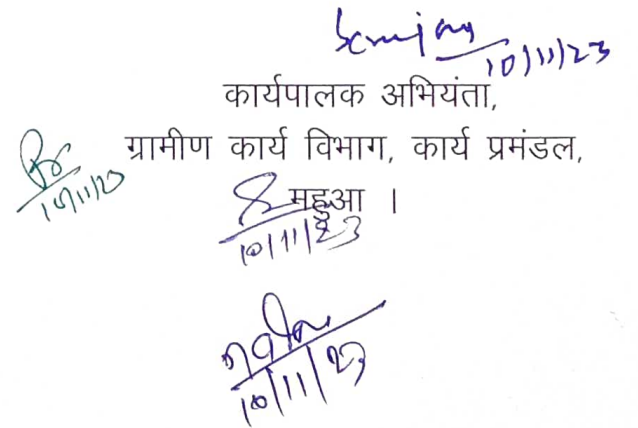 10/11/23
कार्यपालक अभियंता,
ग्रामीण कार्य विभाग, कार्य प्रमंडल,
10/11/23
महुआ ।
10/11/23
10/11/23